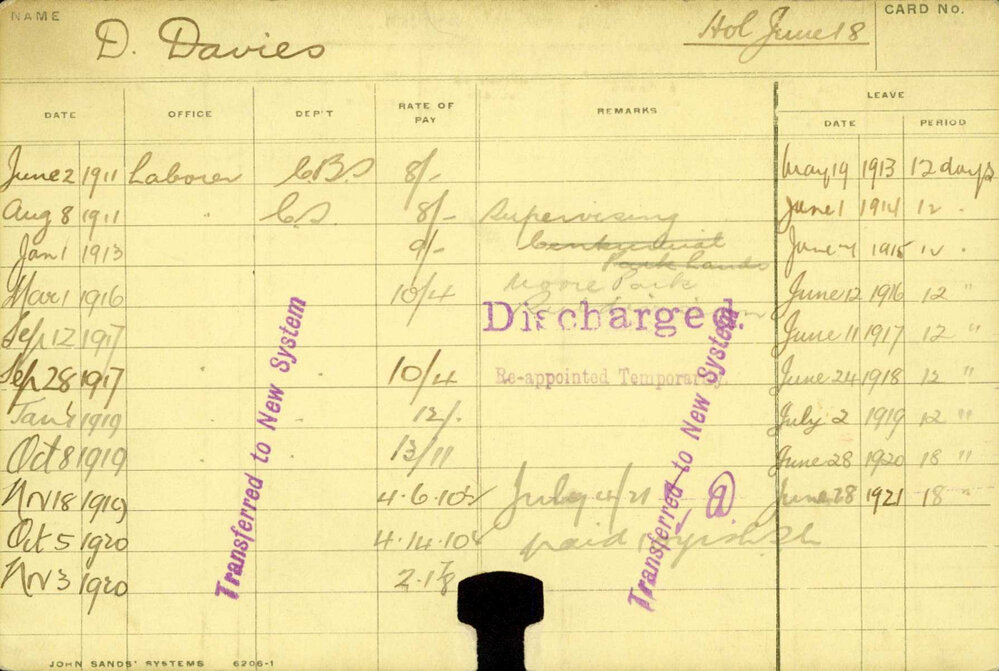 NAME
D. Davies
Hol June 18
CARD No.
DATE OFFICE DEP'T RATE OF PAY REMARKS LEAVE
DATE PERIOD
June 2 1911 Laborer C.B.S 8/- May 19 1913 12 days
Aug 8 1911 " C.S. 8/- Supervising June 1 1914 12 "
Jan 1 1913 9/- Centennial June 7 1915 12 "
Park Lands
Mar 1 1916 10/4 Moore Park June 12 1916 12 "
Sep 12 1917 Discharged. June 11 1917 12 "
Sep 28 1917 " " 10/4 Re-appointed Temporary June 24 1918 12 "
Jan 1 1919 12/- July 2 1919 12 "
Oct 8 1919 13/11 June 28 1920 18 "
Nov 18 1919 4.6.10 July 4/21 June 28 1921 18 "
Oct 5 1920 4.14.10 paid
Nov 3 1920
Transferred to New System
Transferred to New System
JOHN SANDS' SYSTEMS 6206-1